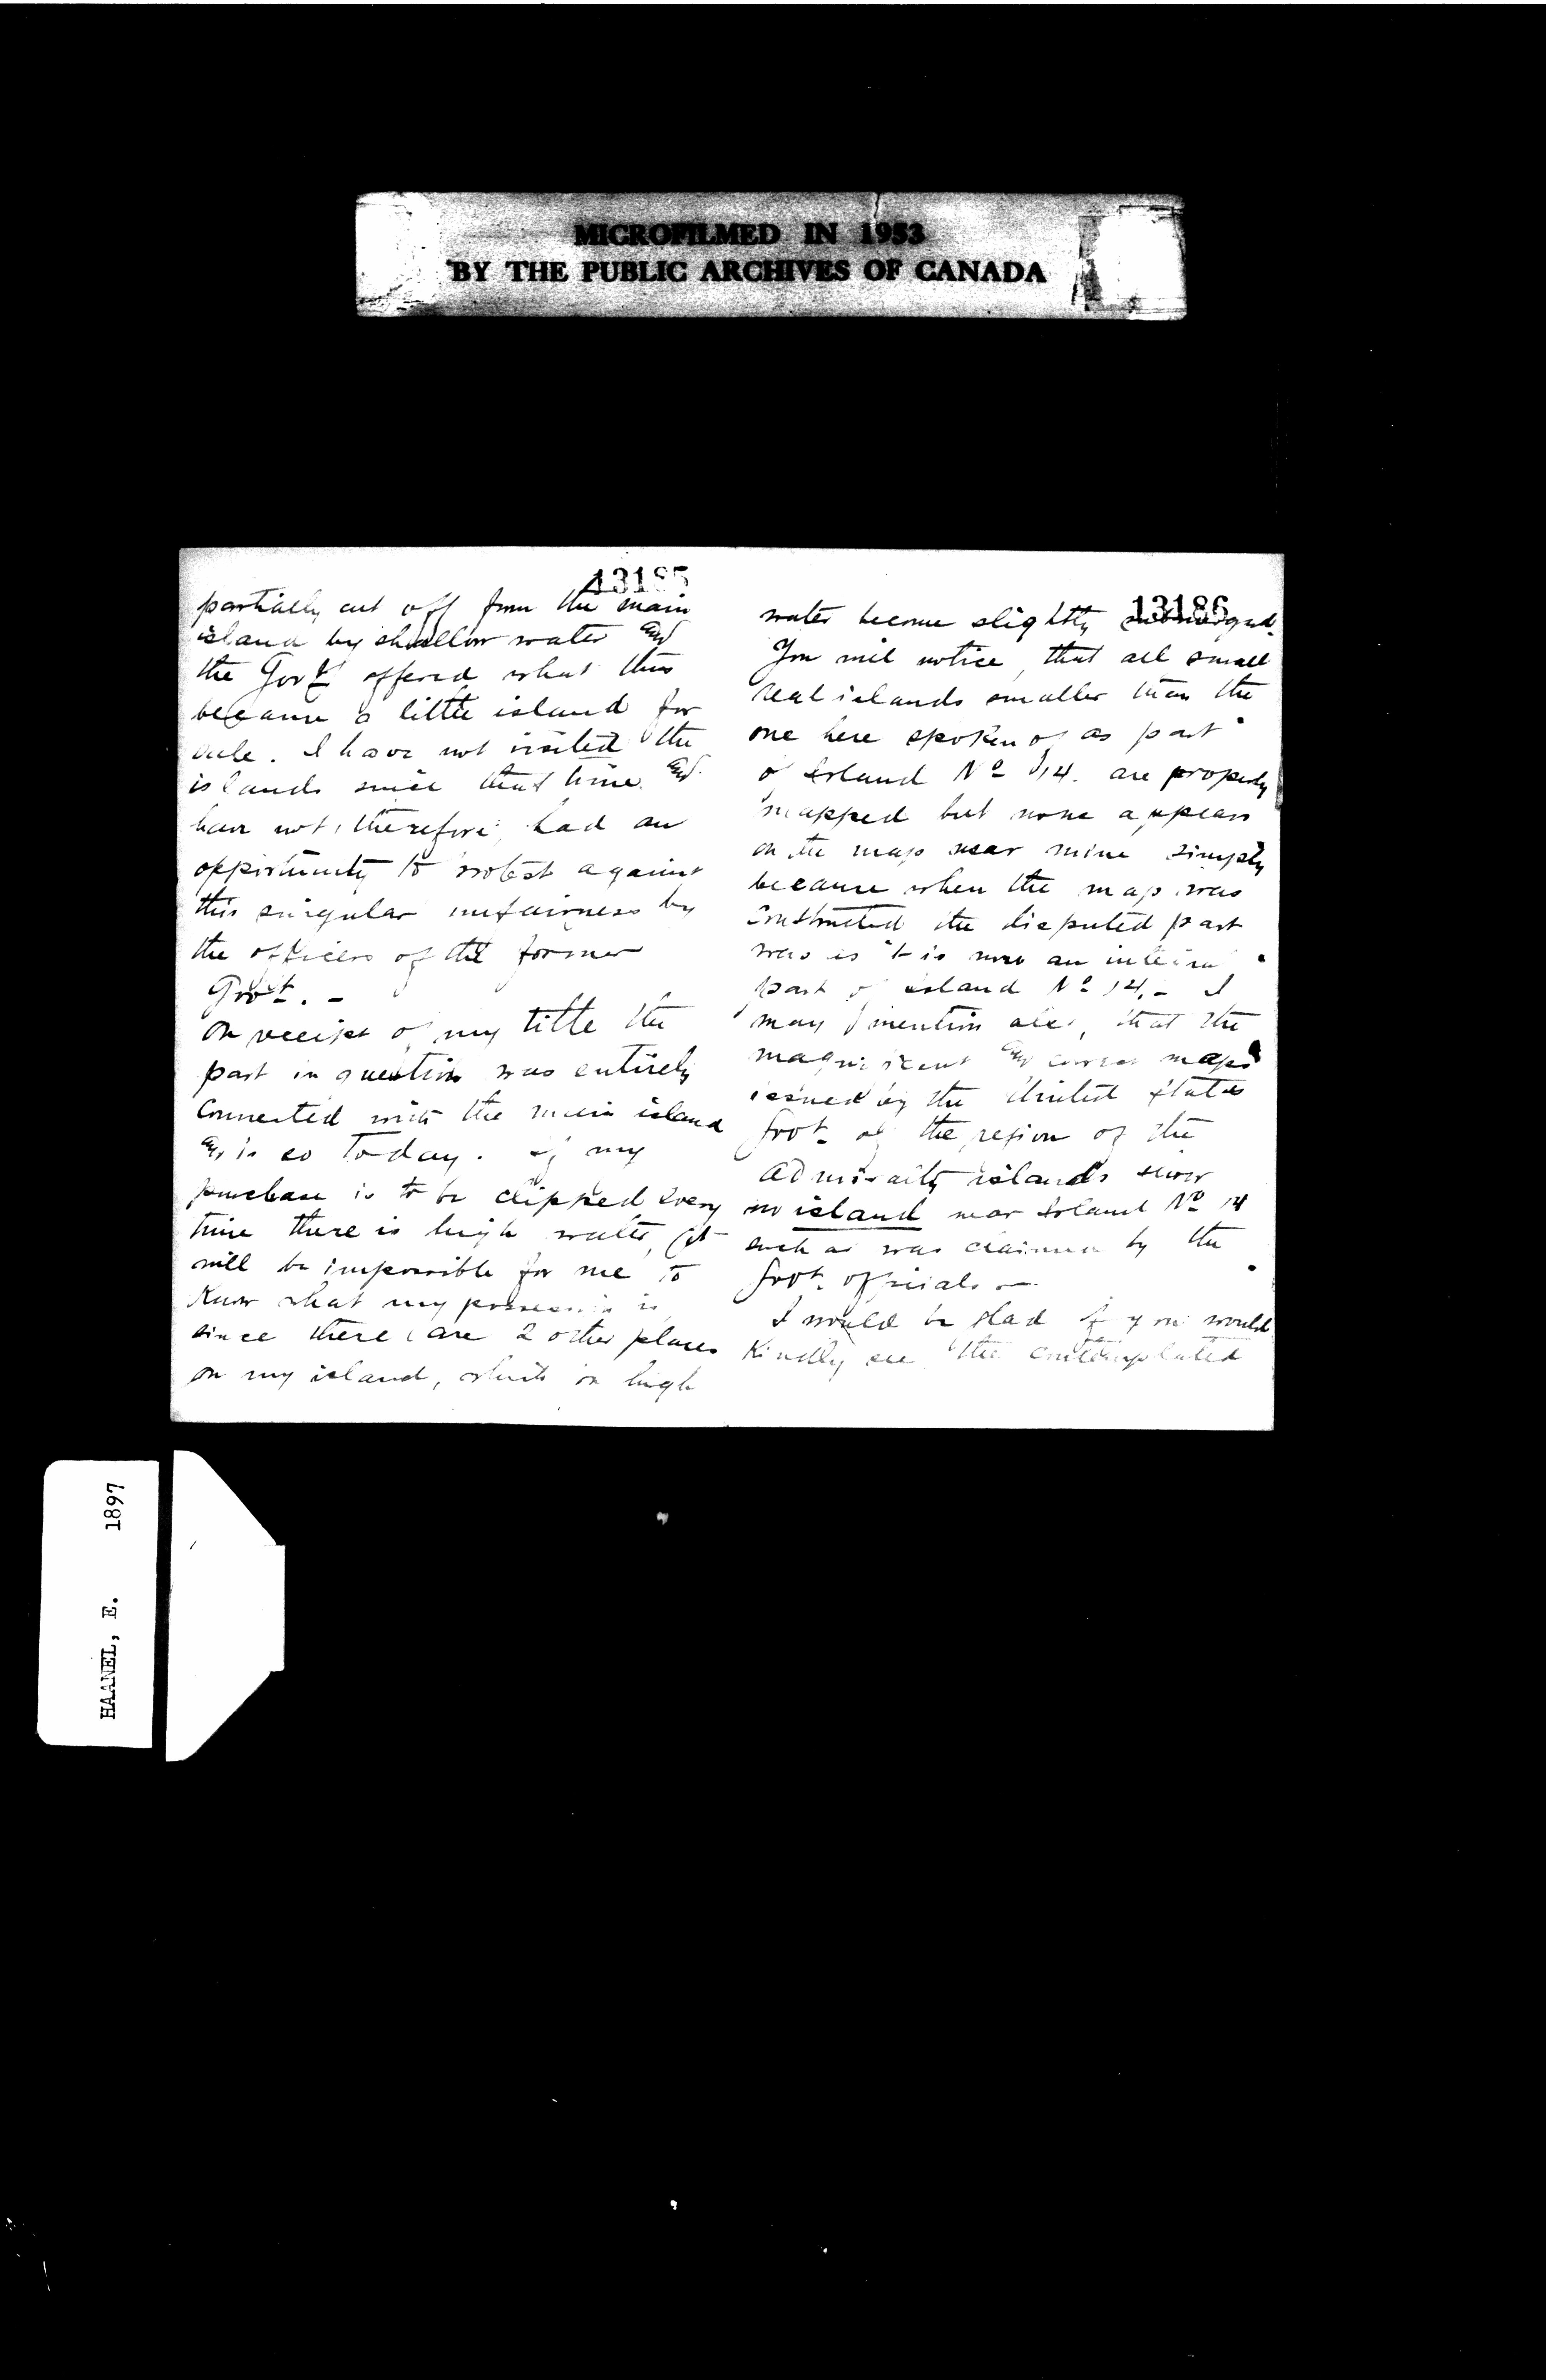 MICROFILMED IN 1953
BY THE PUBLIC ARCHIVES OF CANADA
13185
partially cut off from the main
island by shallow water and
the Govt offered what thus
became a little island for
sale. I have not visited the
islands since that time and
have not, therefore, had an
opportunity to protest against
this singular unfairness by
the officers of the former
Govt. -
On receipt of my title the
part in question was entirely
connected with the main island
and is so To-day. If my
purchase is to be clipped every
time there is high water, it
will be impossible for me to
Know what my possession is
since there are 2 other places
on my island, which in high
13186
water become slightly submerged.
You will notice, that all small
real islands smaller than the
one here spoken of as part
of Island No 14. are properly
mapped but none appears
on the map near mine simply
because when the map was
Constructed the disputed part
was as it is now an integral
part of island No 14. - I
may mention also, that the
magnificent and correct maps
issued by the United States
Govt. of the region of the
Admiralty islands show
no island near Island No 14
such as was claimed by the
Govt. officials -
I would be glad if you would
Kindly see the contemplated
HAANEL, E. 1897